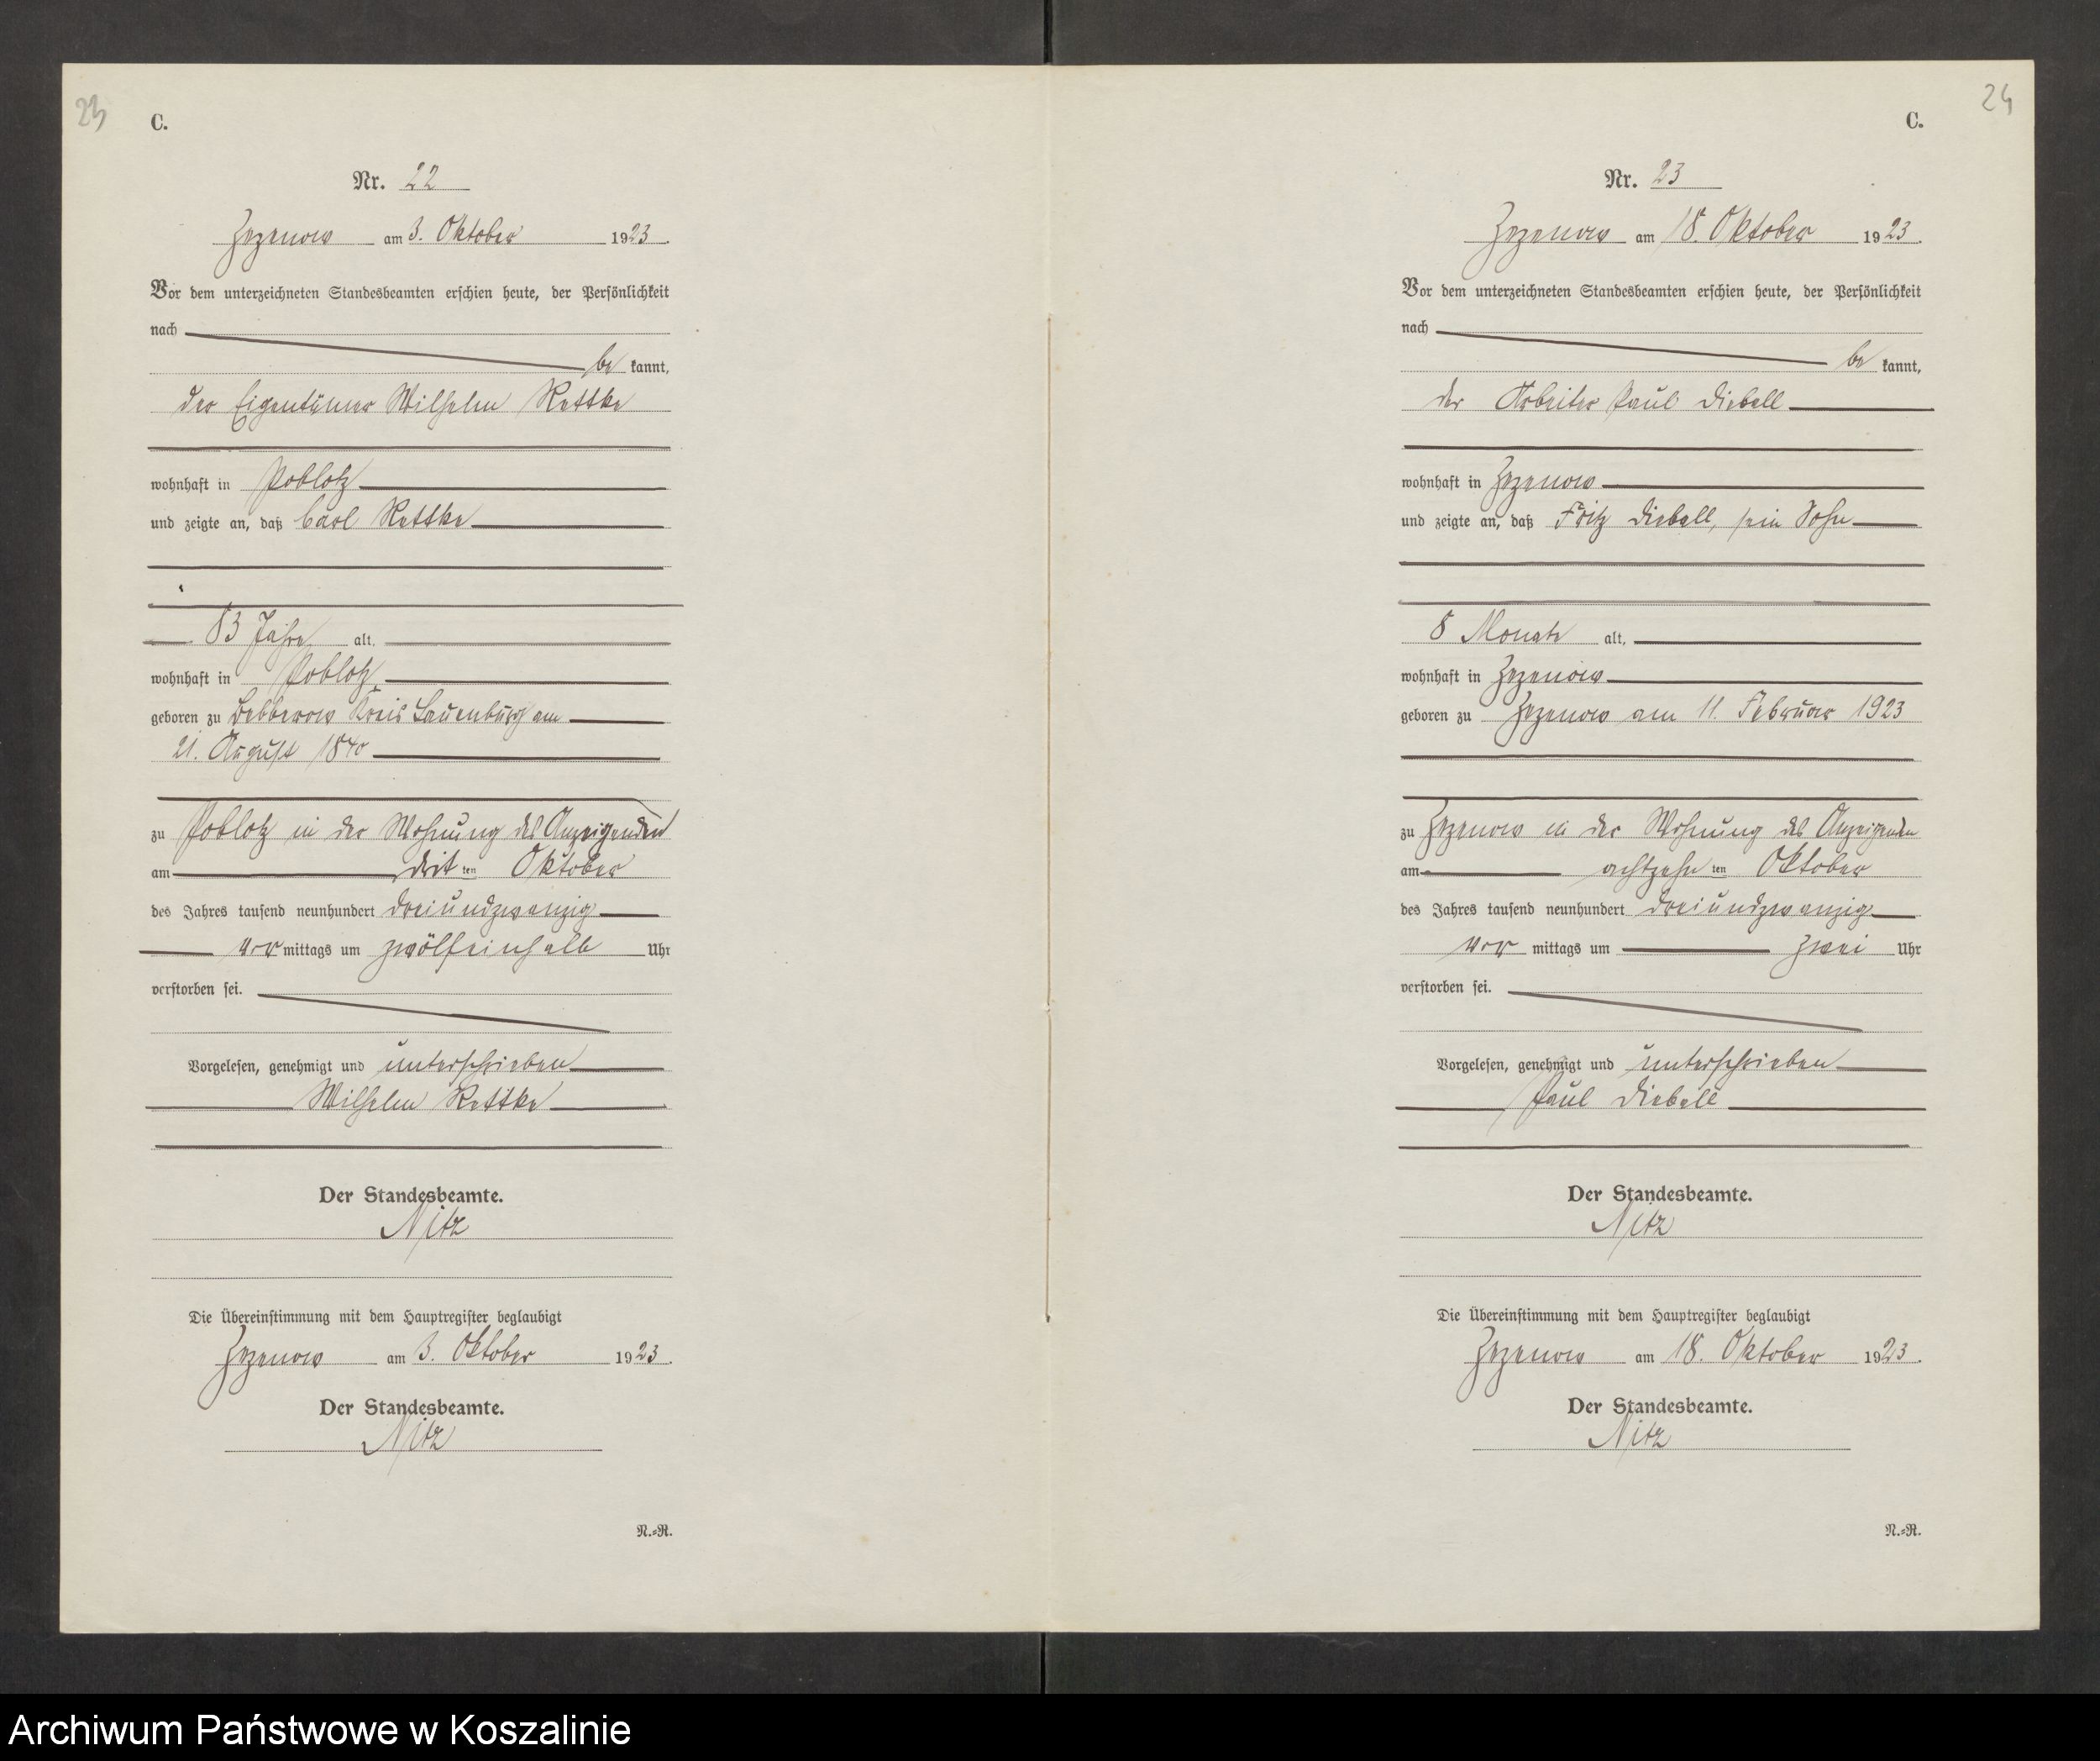 23
C.
Nr. 22
Zezenow am 3. Oktober 1923.
Vor dem unterzeichneten Standesbeamten erschien heute, der Persönlichkeit
nach
be kannt,
der Eigentümer Wilhelm Rettke
wohnhaft in Poblotz
und zeigte an, daß Carl Rettke
83 Jahre alt,
wohnhaft in Poblotz
geboren zu Bebberow Kreis Lauenburg am
21. August 1840
zu Poblotz in der Wohnung des Anzeigenden
am drit ten Oktober
des Jahres tausend neunhundert dreiundzwanzig
vor mittags um zwölfeinhalb Uhr
verstorben sei.
Vorgelesen, genehmigt und unterschrieben
Wilhelm Rettke
Der Standesbeamte.
Nitz
Die Übereinstimmung mit dem Hauptregister beglaubigt
Zezenow am 3. Oktober 1923.
Der Standesbeamte.
Nitz
N.=R.
24
C.
Nr. 23
Zezenow am 18. Oktober 1923.
Vor dem unterzeichneten Standesbeamten erschien heute, der Persönlichkeit
nach
be kannt,
der Arbeiter Paul Dieball
wohnhaft in Zezenow
und zeigte an, daß Fritz Dieball, sein Sohn
8 Monate alt,
wohnhaft in Zezenow
geboren zu Zezenow am 11. Februar 1923
zu Zezenow in der Wohnung des Anzeigenden
am achtzehn ten Oktober
des Jahres tausend neunhundert dreiundzwanzig
vor mittags um zwei Uhr
verstorben sei.
Vorgelesen, genehmigt und unterschrieben
Paul Dieball
Der Standesbeamte.
Nitz
Die Übereinstimmung mit dem Hauptregister beglaubigt
Zezenow am 18. Oktober 1923.
Der Standesbeamte.
Nitz
N.=R.
Archiwum Państwowe w Koszalinie